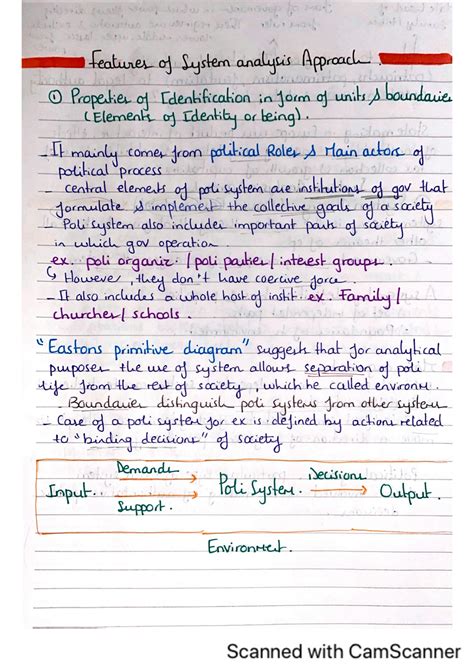 Features of System analysis Approach.
① Properties of Identification in form of units & boundaries
(Elements of Identity or being).
- It mainly comes from political Roles & Main actors of
political process
- central elements of poli system are institutions of gov that
formulate & implement the collective goals of a society
- Poli system also includes important parts of society
in which gov operation
ex. poli organiz. / poli parties / interest groups.
↳ However, they don't have coercive force.
- It also includes a whole host of instit. ex. Family/
churches/ schools.
"Eastons primitive diagram" suggests that for analytical
purposes the use of system allows separation of poli
life from the rest of society, which he called environ.
Boundaries distinguish poli systems from other systems
- Case of a poli system for ex is defined by actions related
to "binding decisions" of society.
Demands Decisions
Input. Poli System. Output.
Support.
Environment.
Scanned with CamScanner